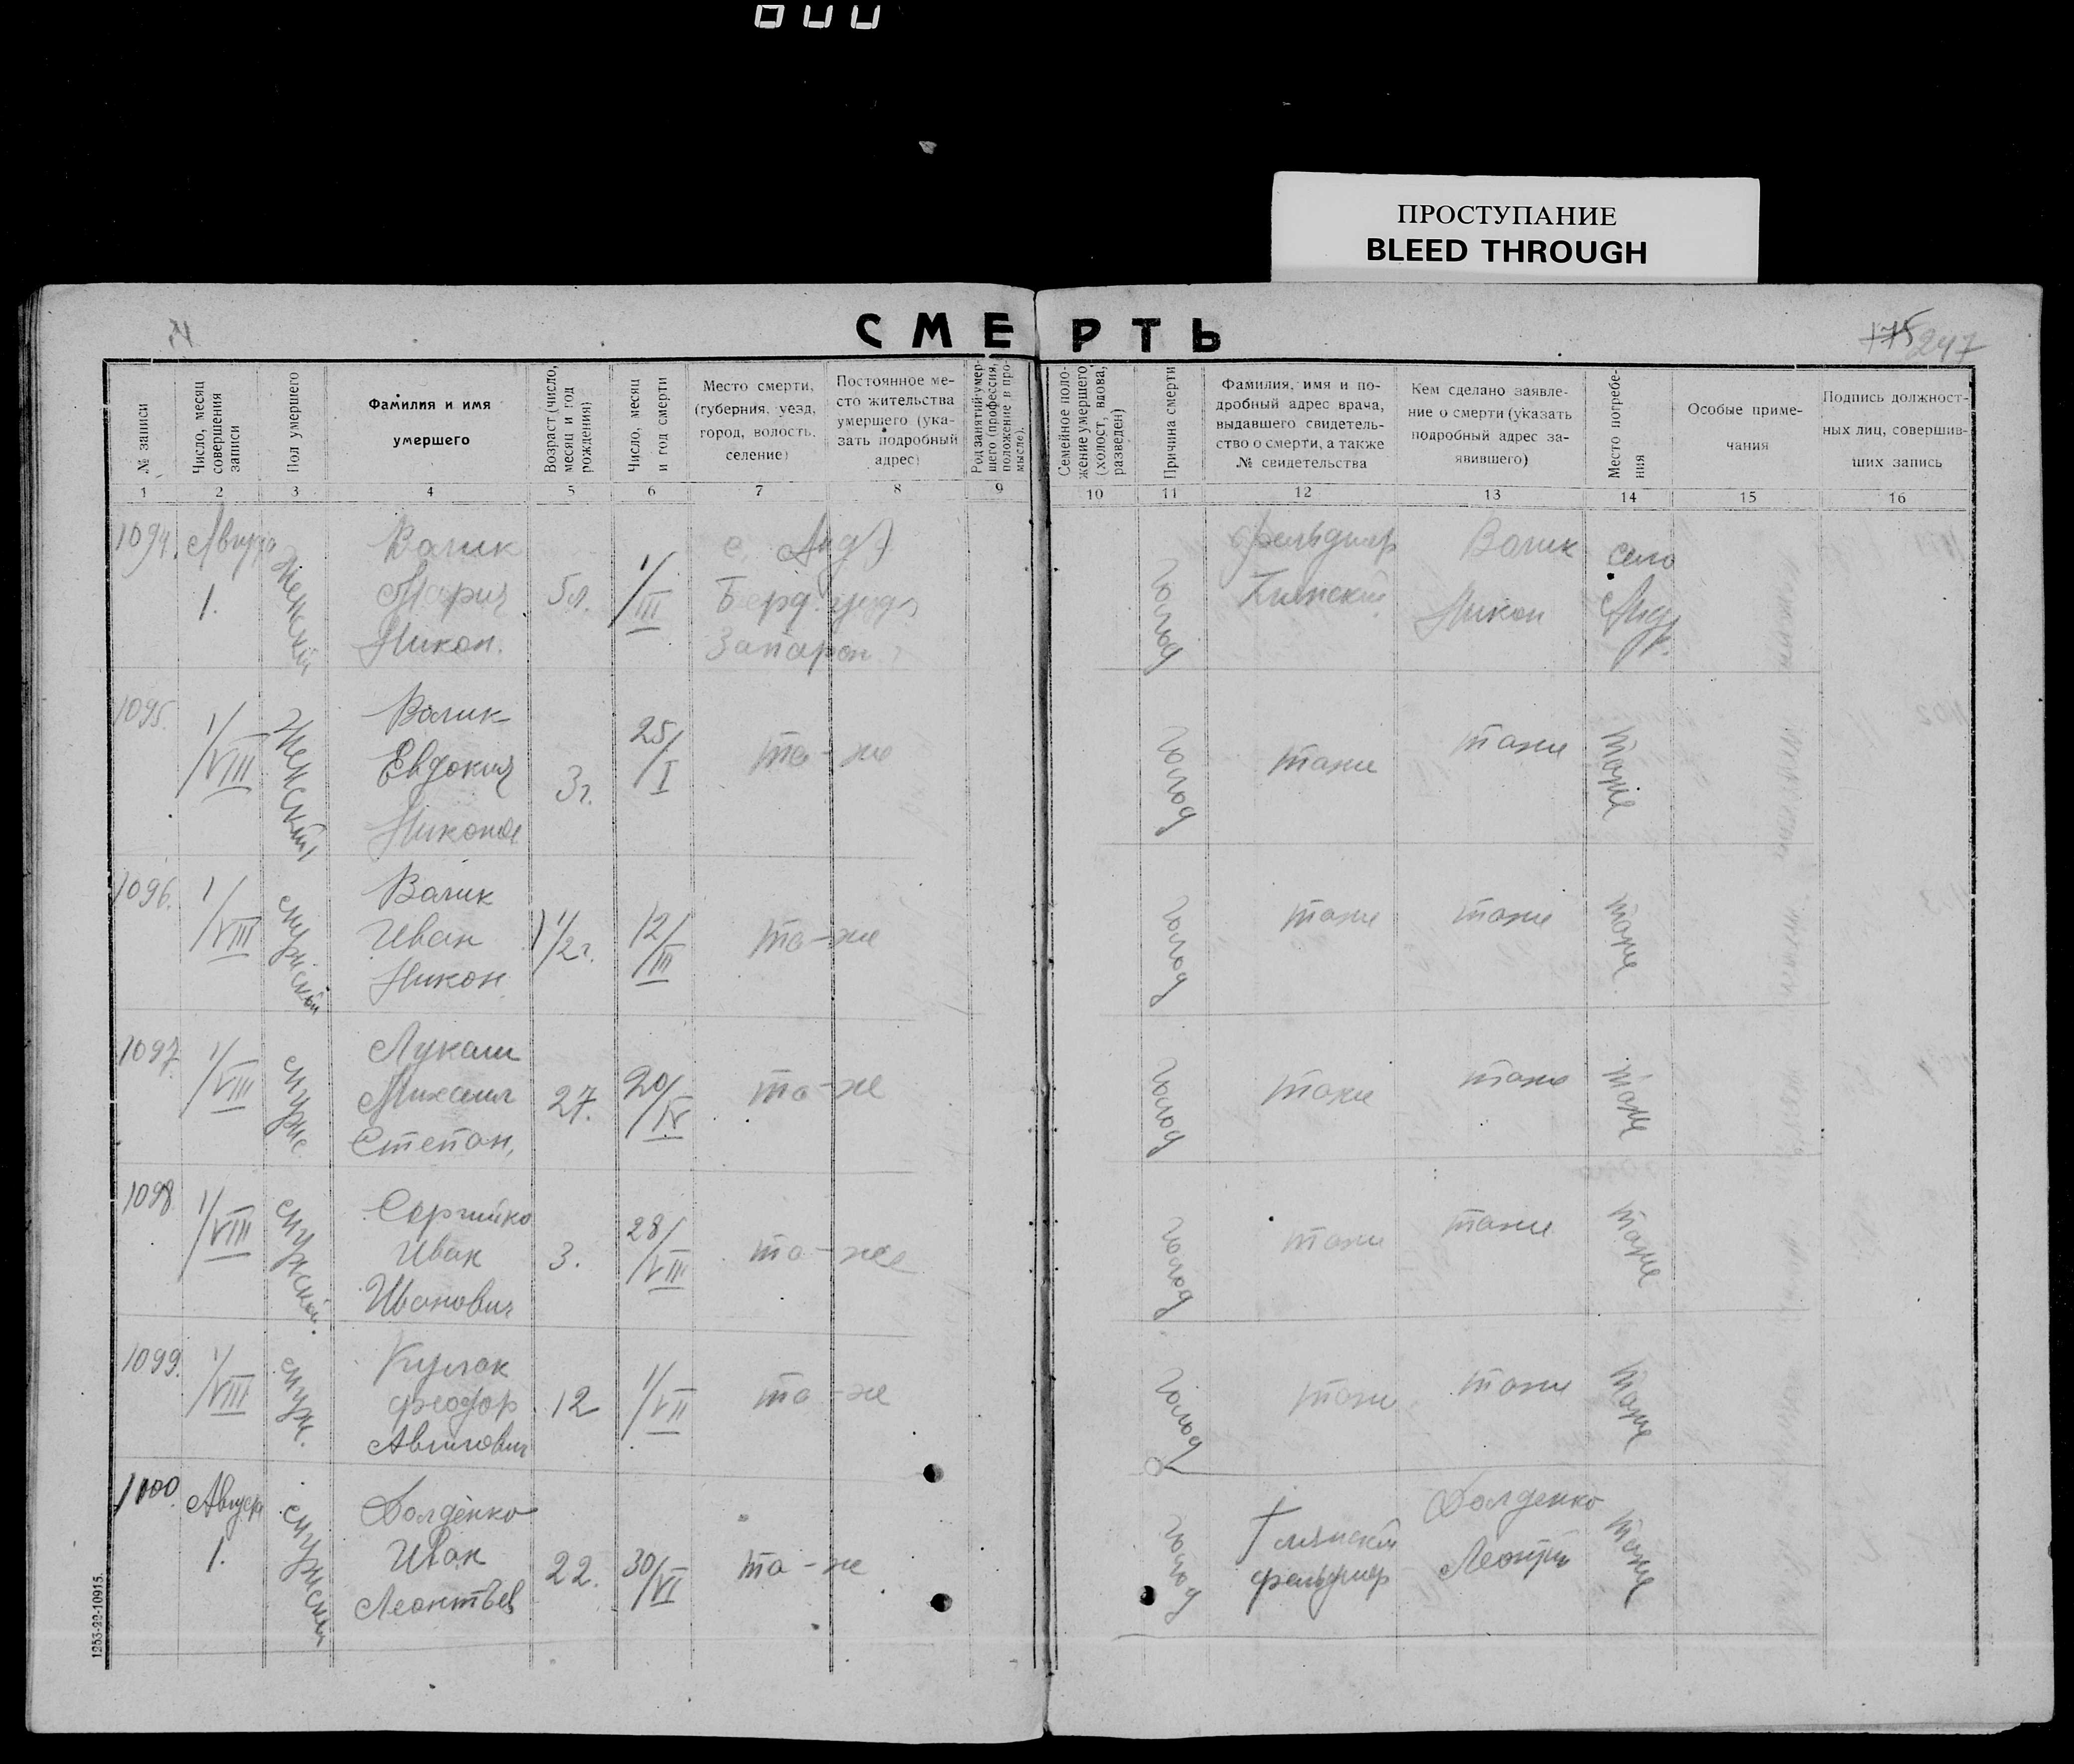 ПРОСТУПАНИЕ
BLEED THROUGH
СМЕРТЬ
175 247
№ записи
Число, месяц совершения записи
Пол умершего
Фамилия и имя
умершего
Возраст (число, месяц и год рождения)
Число, месяц и год смерти
Место смерти,
(губерния, уезд,
город, волость,
селение)
Постоянное ме-
сто жительства
умершего (ука-
зать подробный
адрес)
Род занятий умер-
шего (профессия,
положение в про-
мысле).
Семейное поло-
жение умершего
(холост, вдова,
разведен)
Причина смерти
Фамилия, имя и по-
дробный адрес врача,
выдавшего свидетель-
ство о смерти, а также
№ свидетельства
Кем сделано заявле-
ние о смерти (указать
подробный адрес за-
явившего)
Место погребе-
ния
Особые приме-
чания
Подпись должност-
ных лиц, совершив-
ших запись
1 2 3 4 5 6 7 8 9 10 11 12 13 14 15 16
1094. Август
1.
Женский
Волик
Мария
Никон.
5л.
1/III
с. Анд
Берд. уезда
Запарож
голод
фельдшер
Волик
Никон
село
Анд.
1095.
1/VIII
Женский
Волик
Евдокия
Никонов
3г.
25/I
то-же
голод
тоже
тоже
тоже
1096.
1/VIII
мужской
Волик
Иван
Никон
1 1/2 г.
12/III
то-же
голод
тоже
тоже
тоже
1097
1/VIII
мужс
Лукаш
Михаил
Степан.
27.
20/IV
то-же
голод
тоже
тоже
тоже
1098
1/VIII
мужской.
Сергийко
Иван
Иванович
3.
28/VII
то-же
голод
тоже
тоже
тоже
1099.
1/VIII
муж.
Кулак
Феодор
12
1/VII
то-же
голод
тоже
тоже
тоже
1100. Август
1.
мужской
Долденко
Иван
Леонтьев
22.
30/VI
то-же
голод
фельдшер
Долденко
Леонтий
тоже
1253-22-10915.